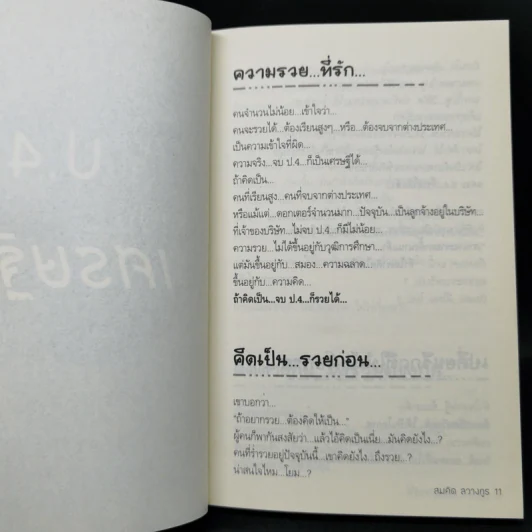 ความรวย...ที่รัก...
คนจำนวนไม่น้อย...เข้าใจว่า...
คนจะรวยได้...ต้องเรียนสูงๆ...หรือ...ต้องจบจากต่างประเทศ...
เป็นความเข้าใจที่ผิด...
ความจริง...จบ ป.4...ก็เป็นเศรษฐีได้...
ถ้าคิดเป็น...
คนที่เรียนสูง...คนที่จบจากต่างประเทศ...
หรือแม้แต่...ดอกเตอร์จำนวนมาก...ปัจจุบัน...เป็นลูกจ้างอยู่ในบริษัท...
ที่เจ้าของบริษัท...ไม่จบ ป.4...ก็มีไม่น้อย...
ความรวย...ไม่ได้ขึ้นอยู่กับวุฒิการศึกษา...
แต่มันขึ้นอยู่กับ...สมอง...ความฉลาด...
ขึ้นอยู่กับ...ความคิด...
ถ้าคิดเป็น...จบ ป.4...ก็รวยได้...
คิดเป็น...รวยก่อน...
เขาบอกว่า...
"ถ้าอยากรวย...ต้องคิดให้เป็น..."
ผู้คนก็พากันสงสัยว่า...แล้วไอ้คิดเป็นเนี่ย...มันคิดยังไง...?
คนที่ร่ำรวยอยู่ปัจจุบันนี้...เขาคิดยังไง...ถึงรวย...?
น่าสนใจไหม...โยม...?
สมคิด ลวางกูร 11